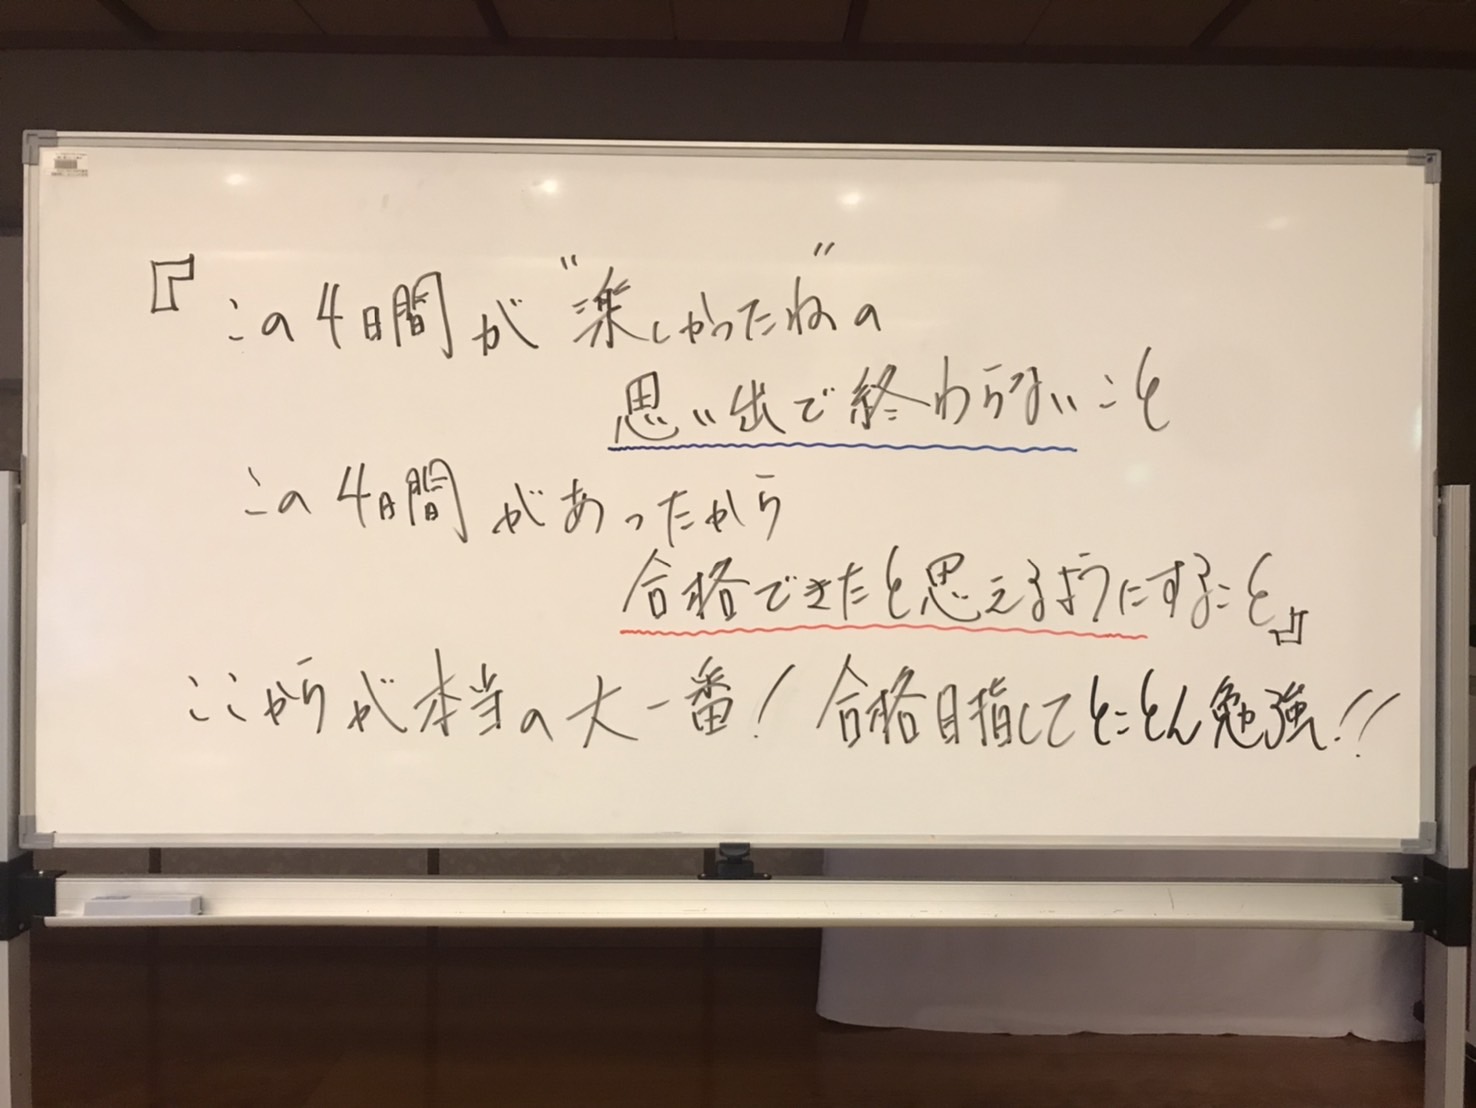 『この4日間が"楽しかったね"の
思い出で終わらないこと
この4日間があったから
合格できたと思えるようにすること』
ここからが本当の大一番! 合格目指してとことん勉強!!